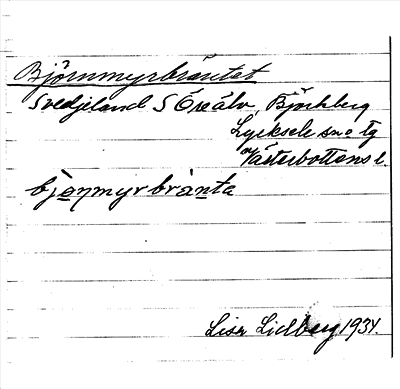 Björnmyrbräntet
Svedjeland S Öreälv, Björkberg
Lycksele sn o tg
Västerbottens l.
bjo̲ŋmyrbrànta
Lisa Lidberg 1934.